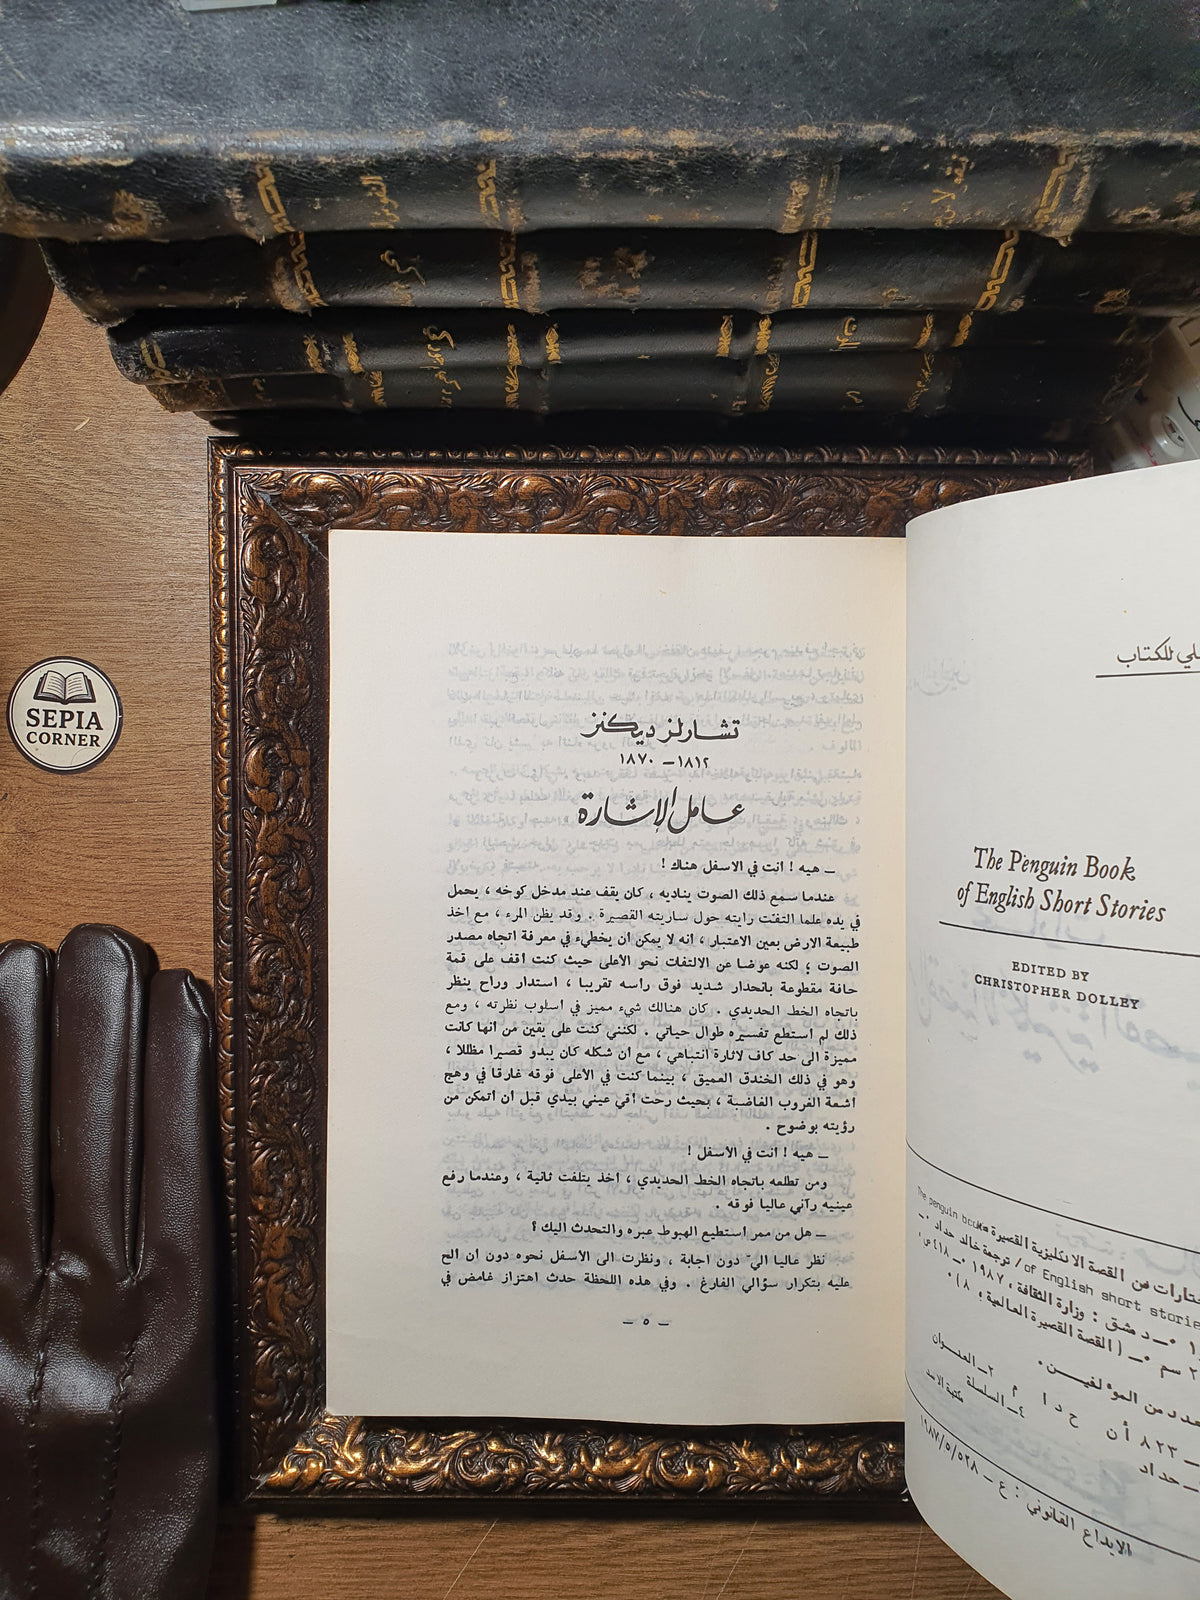 SEPIA
CORNER
تشارلز ديكنز
١٨١٢ – ١٨٧٠
عامل الإشارة
– هيه ! انت في الاسفل هناك !
عندما سمع ذلك الصوت يناديه ، كان يقف عند مدخل كوخه ، يحمل
في يده علما التفت رايته حول ساريته القصيرة . وقد يظن المرء ، مع اخذ
طبيعة الارض بعين الاعتبار ، انه لا يمكن ان يخطيء في معرفة اتجاه مصدر
الصوت ؛ لكنه عوضا عن الالتفات نحو الأعلى حيث كنت اقف على قمة
حافة مقطوعة بانحدار شديد فوق راسه تقريبا ، استدار وراح ينظر
باتجاه الخط الحديدي . كان هنالك شيء مميز في اسلوب نظرته ، ومع
ذلك لم استطع تفسيره طوال حياتي . لكنني كنت على يقين من انها كانت
مميزة الى حد كاف لاثارة انتباهي ، مع ان شكله كان يبدو قصيرا مظللا ،
وهو في ذلك الخندق العميق ، بينما كنت في الأعلى فوقه غارقا في وهج
اشعة الغروب الغاضبة ، بحيث رحت اقي عيني بيدي قبل ان اتمكن من
رؤيته بوضوح .
– هيه ! انت في الأسفل !
ومن تطلعه باتجاه الخط الحديدي ، اخذ يتلفت ثانية ، وعندما رفع
عينيه رآني عاليا فوقه .
– هل من ممر استطيع الهبوط عبره والتحدث اليك ؟
نظر عاليا اليّ دون اجابة ، ونظرت الى الأسفل نحوه دون ان الح
عليه بتكرار سؤالي الفارغ . وفي هذه اللحظة حدث اهتزاز غامض في
– ٥ –
للكتاب
The Penguin Book
of English Short Stories
EDITED BY
CHRISTOPHER DOLLEY
من القصة الانكليزية القصيرة The penguin book
of English short stories / ترجمة خالد حداد ٠ –
دمشق : وزارة الثقافة ، ١٩٨٧ ٠ –
سم ٠ – ( القصة القصيرة العالمية ؛ ٨ ) ٠
٨٢٣ أن ح د ا م ٢ – العنوان
حداد ٤ – السلسلة
مكتبة الاسد
الايداع القانوني : ع – ١٩٨٧/٥/٥٢٨